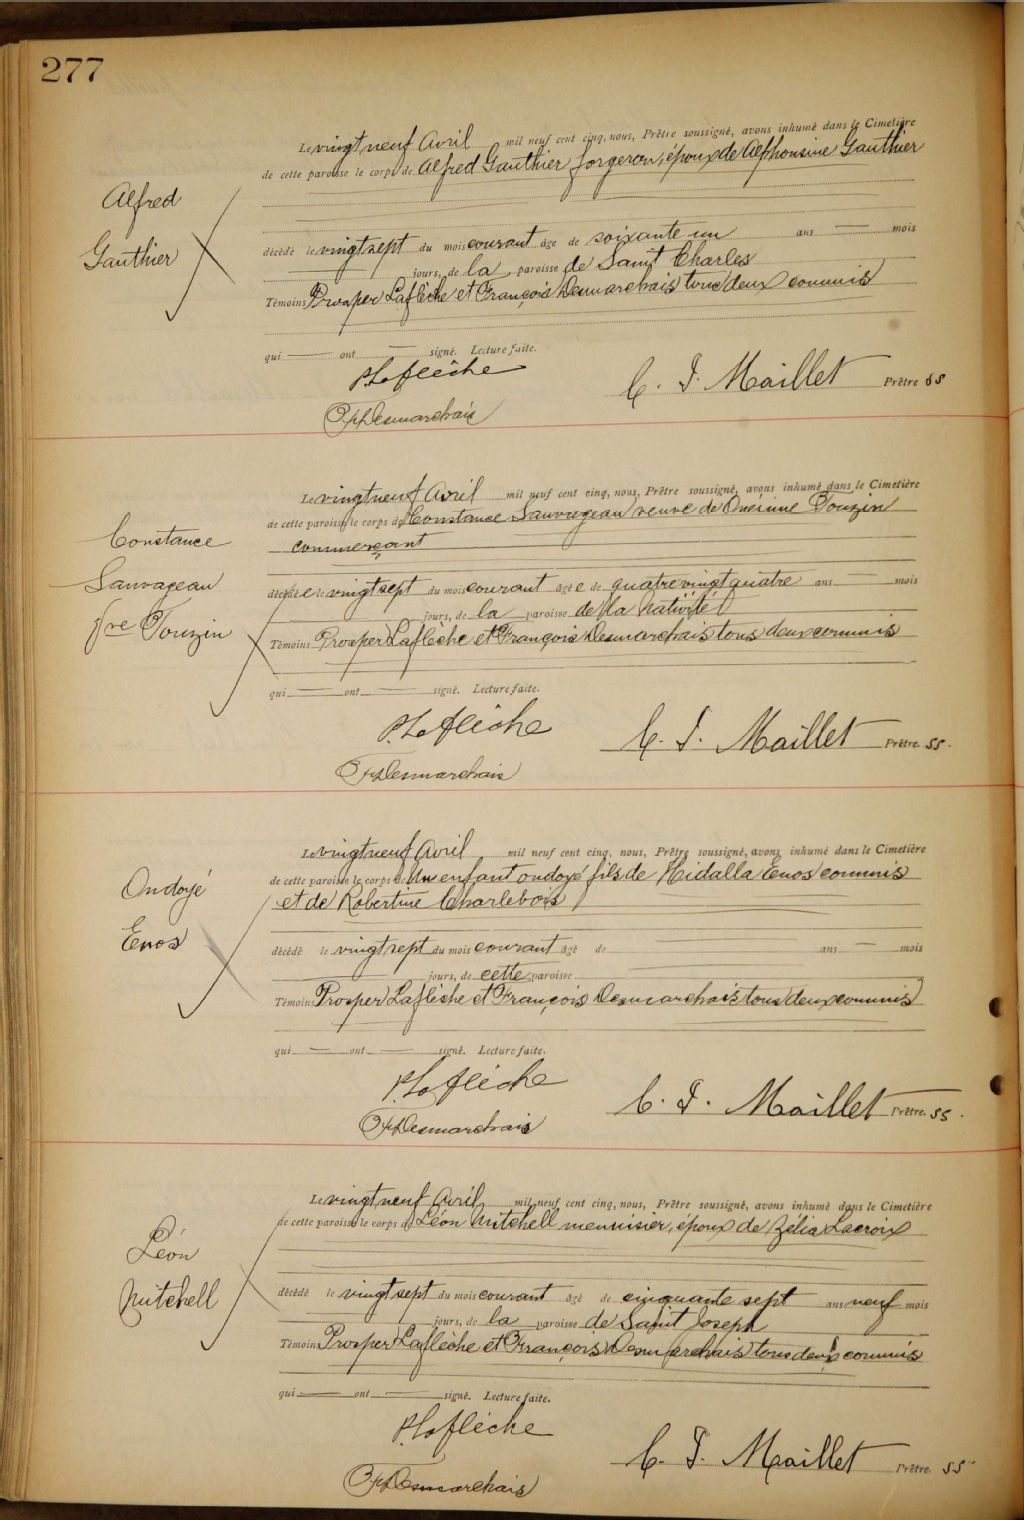 277
Alfred
Gauthier
Le vingt neuf Avril mil neuf cent cinq, nous, Prêtre soussigné, avons inhumé dans le Cimetière
de cette paroisse le corps de Alfred Gauthier forgeron, époux de Alphonsine Gauthier
décédé le vingt sept du mois courant âgé de soixante un ans — mois
jours, de la paroisse de Saint Charles
Témoins Prosper Laflèche et François Desmarchais tous deux commis
qui — ont — signé. Lecture faite.
P. Laflèche
C. J. Maillet Prêtre SS
Fr Desmarchais
Constance
Sauvageau
Vve Touzin
Le vingt neuf Avril mil neuf cent cinq, nous, Prêtre soussigné, avons inhumé dans le Cimetière
de cette paroisse le corps de Constance Sauvageau veuve de Onésime Touzin
commerçant
décédée le vingt sept du mois courant âgée de quatre vingt quatre ans mois
jours, de la paroisse de la Nativité
Témoins Prosper Laflèche et François Desmarchais tous deux commis
qui — ont — signé. Lecture faite.
P. Laflèche
C. J. Maillet Prêtre. SS.
Fr Desmarchais
Ondoyé
Enos
Le vingt neuf Avril mil neuf cent cinq, nous, Prêtre soussigné, avons inhumé dans le Cimetière
de cette paroisse le corps de Un enfant ondoyé fils de Hidalla Enos commis
et de Robertine Charlebois
décédé le vingt sept du mois courant âgé de ans — mois
jours, de cette paroisse
Témoins Prosper Laflèche et François Desmarchais tous deux commis
qui — ont — signé. Lecture faite.
P. Laflèche
C. J. Maillet Prêtre. SS.
Fr Desmarchais
Léon
Mitchell
Le vingt neuf Avril mil neuf cent cinq, nous, Prêtre soussigné, avons inhumé dans le Cimetière
de cette paroisse le corps de Léon Mitchell menuisier, époux de Zélia Lacroix
décédé le vingt sept du mois courant âgé de cinquante sept ans neuf mois
jours, de la paroisse de Saint Joseph
Témoins Prosper Laflèche et François Desmarchais tous deux commis
qui — ont — signé. Lecture faite.
P. Laflèche
C. J. Maillet Prêtre. SS
Fr Desmarchais